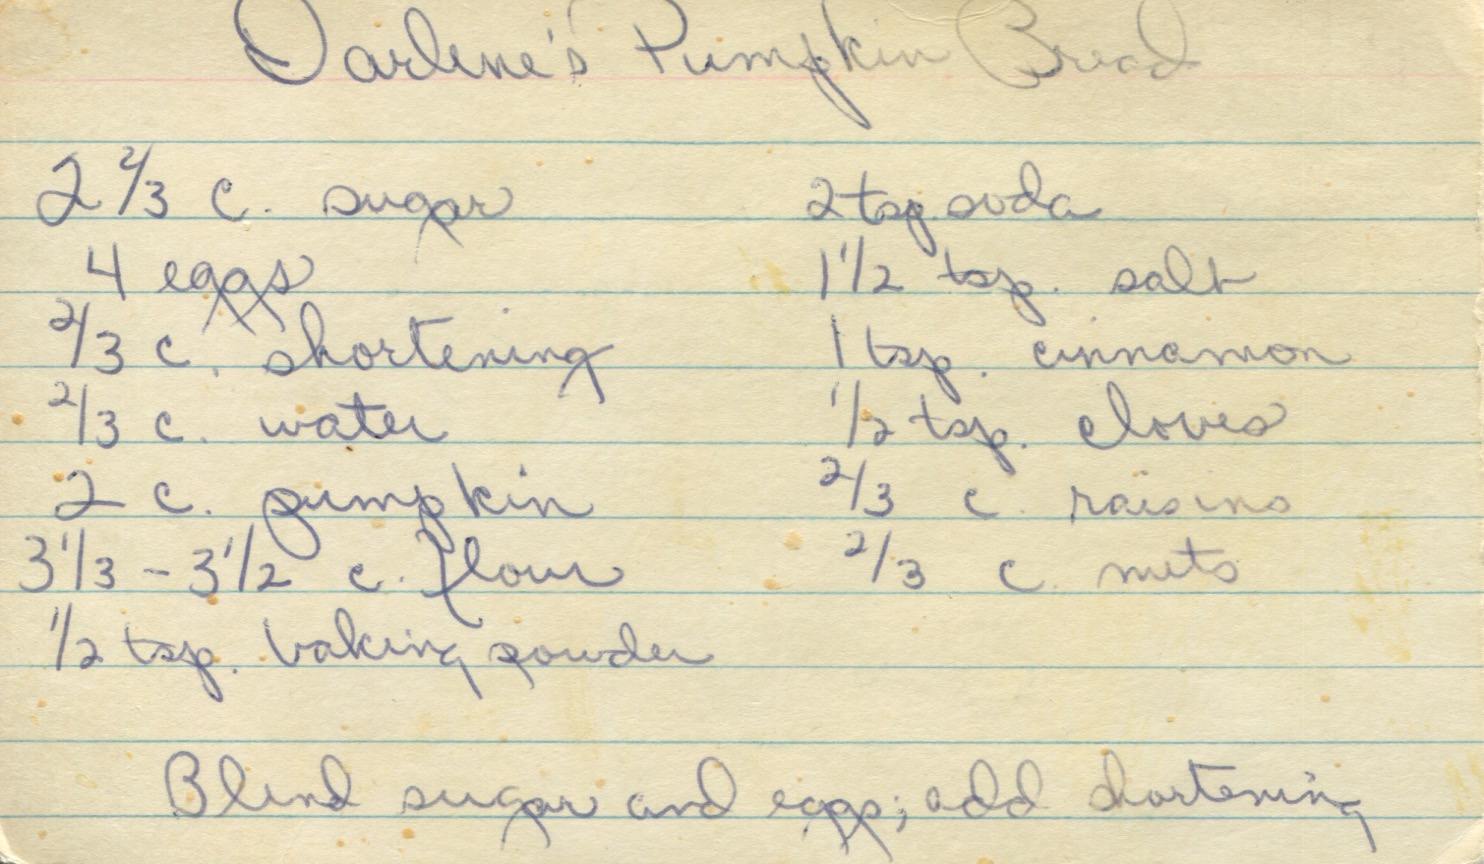 Darlene's Pumpkin Bread
2 2/3 c. sugar
4 eggs
2/3 c. shortening
2/3 c. water
2 c. pumpkin
3 1/3 - 3 1/2 c. flour
1/2 tsp. baking powder
2 tsp. soda
1 1/2 tsp. salt
1 tsp. cinnamon
1/2 tsp. cloves
2/3 c. raisins
2/3 c. nuts
Blend sugar and eggs; add shortening